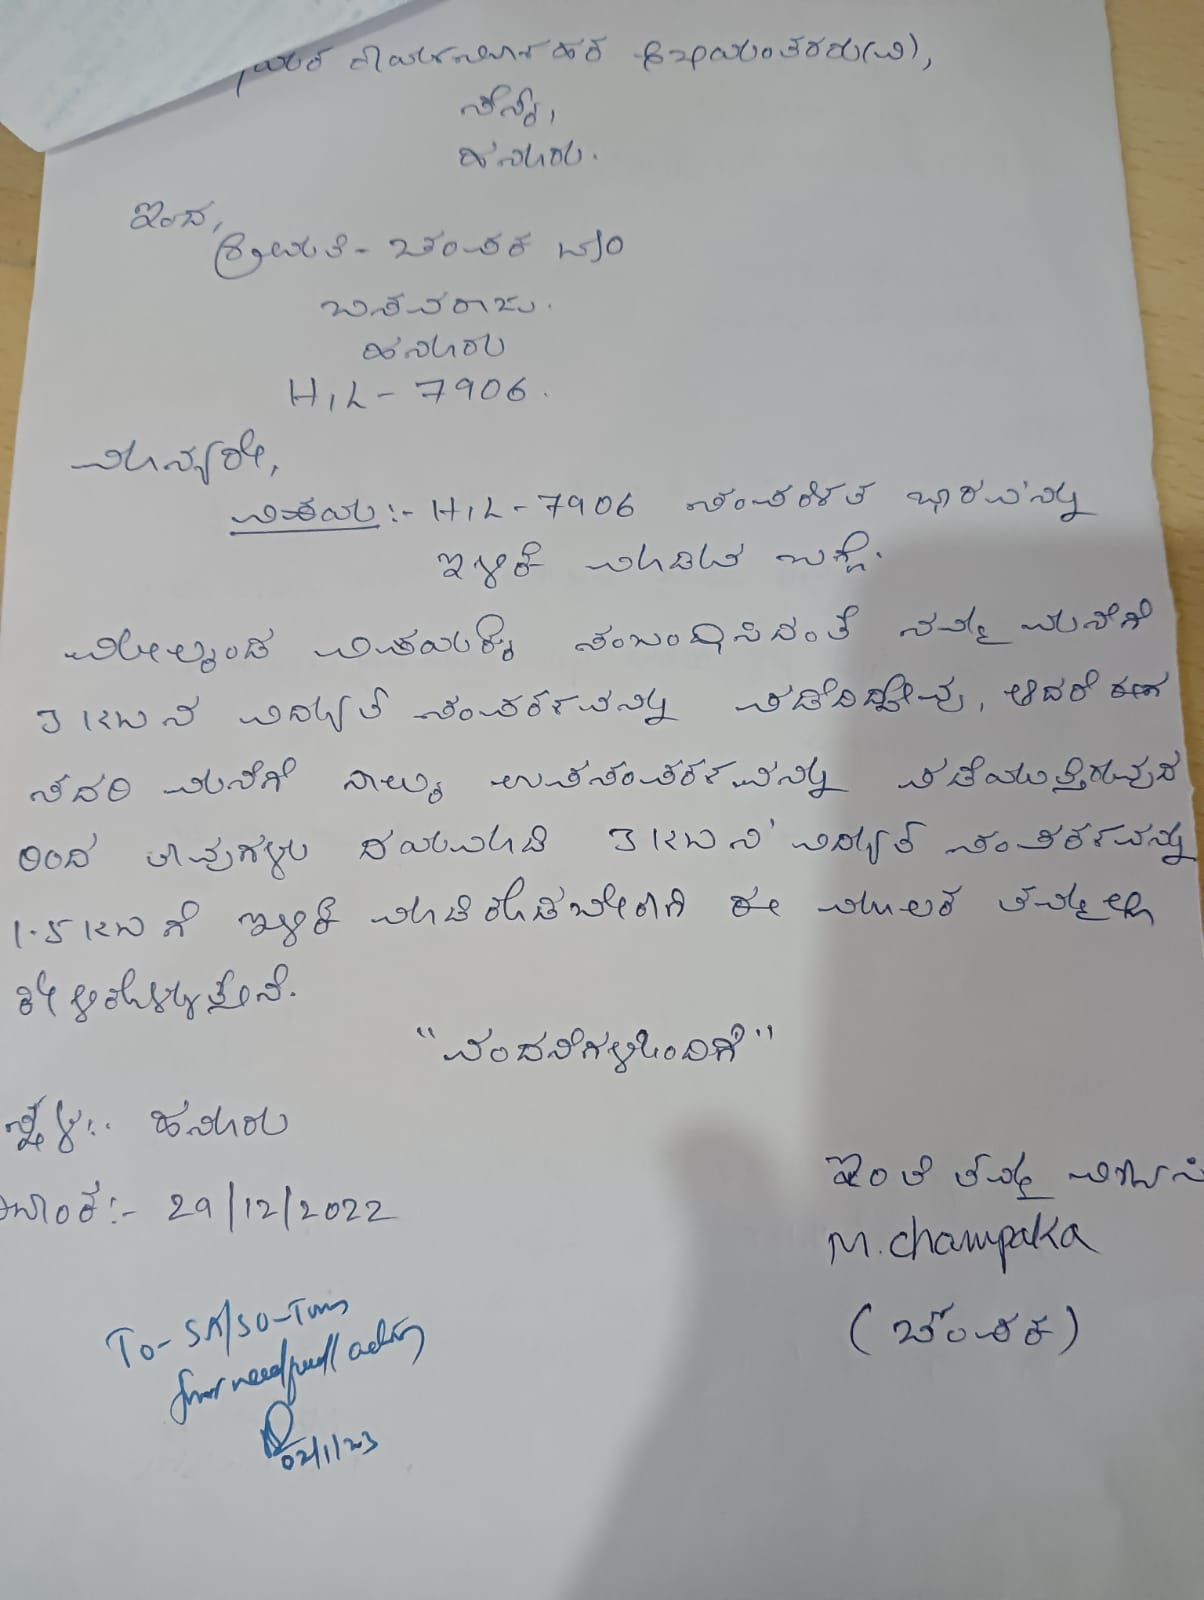 ಕಾರ್ಯನಿರ್ವಾಹಕ ಅಭಿಯಂತರರು(ವಿ),
ಸೆಸ್ಕ,
ಹನೂರು.
ಇಂದ,
ಶ್ರೀಮತಿ- ಚಂಪಕ W/O
ಬಸವರಾಜು.
ಹನೂರು
H,L- 7906.
ಮಾನ್ಯರೇ,
ವಿಷಯ:- H,L- 7906 ಸಂಪರ್ಕದ ಭಾರವನ್ನು
ಇಳಿಕೆ ಮಾಡುವ ಬಗ್ಗೆ.
ಮೇಲ್ಕಂಡ ವಿಷಯಕ್ಕೆ ಸಂಬಂಧಿಸಿದಂತೆ ನಮ್ಮ ಮನೆಗೆ
3 KW ನ ವಿದ್ಯುತ್ ಸಂಪರ್ಕವನ್ನು ಪಡೆದಿದ್ದೇವೆ, ಆದರೆ ಈಗ
ಸದರಿ ಮನೆಗೆ ನಾಲ್ಕು ಉಪಸಂಪರ್ಕವನ್ನು ಪಡೆಯುತ್ತಿರುವುದ
ರಿಂದ ತಾವುಗಳು ದಯಮಾಡಿ 3 KW ನ ವಿದ್ಯುತ್ ಸಂಪರ್ಕವನ್ನು
1.5 KW ಗೆ ಇಳಿಕೆ ಮಾಡಿಕೊಡಬೇಕಾಗಿ ಈ ಮೂಲಕ ತಮ್ಮಲ್ಲಿ
ಕೇಳಿಕೊಳ್ಳುತ್ತೇನೆ.
"ವಂದನೆಗಳೊಂದಿಗೆ"
ಸ್ಥಳ:- ಹನೂರು
ದಿನಾಂಕ:- 29/12/2022
ಇಂತಿ ತಮ್ಮ ವಿಶ್ವಾಸಿ
M. Champaka
(ಚಂಪಕ)
To- SA/SO-
for needfull action
02/1/23